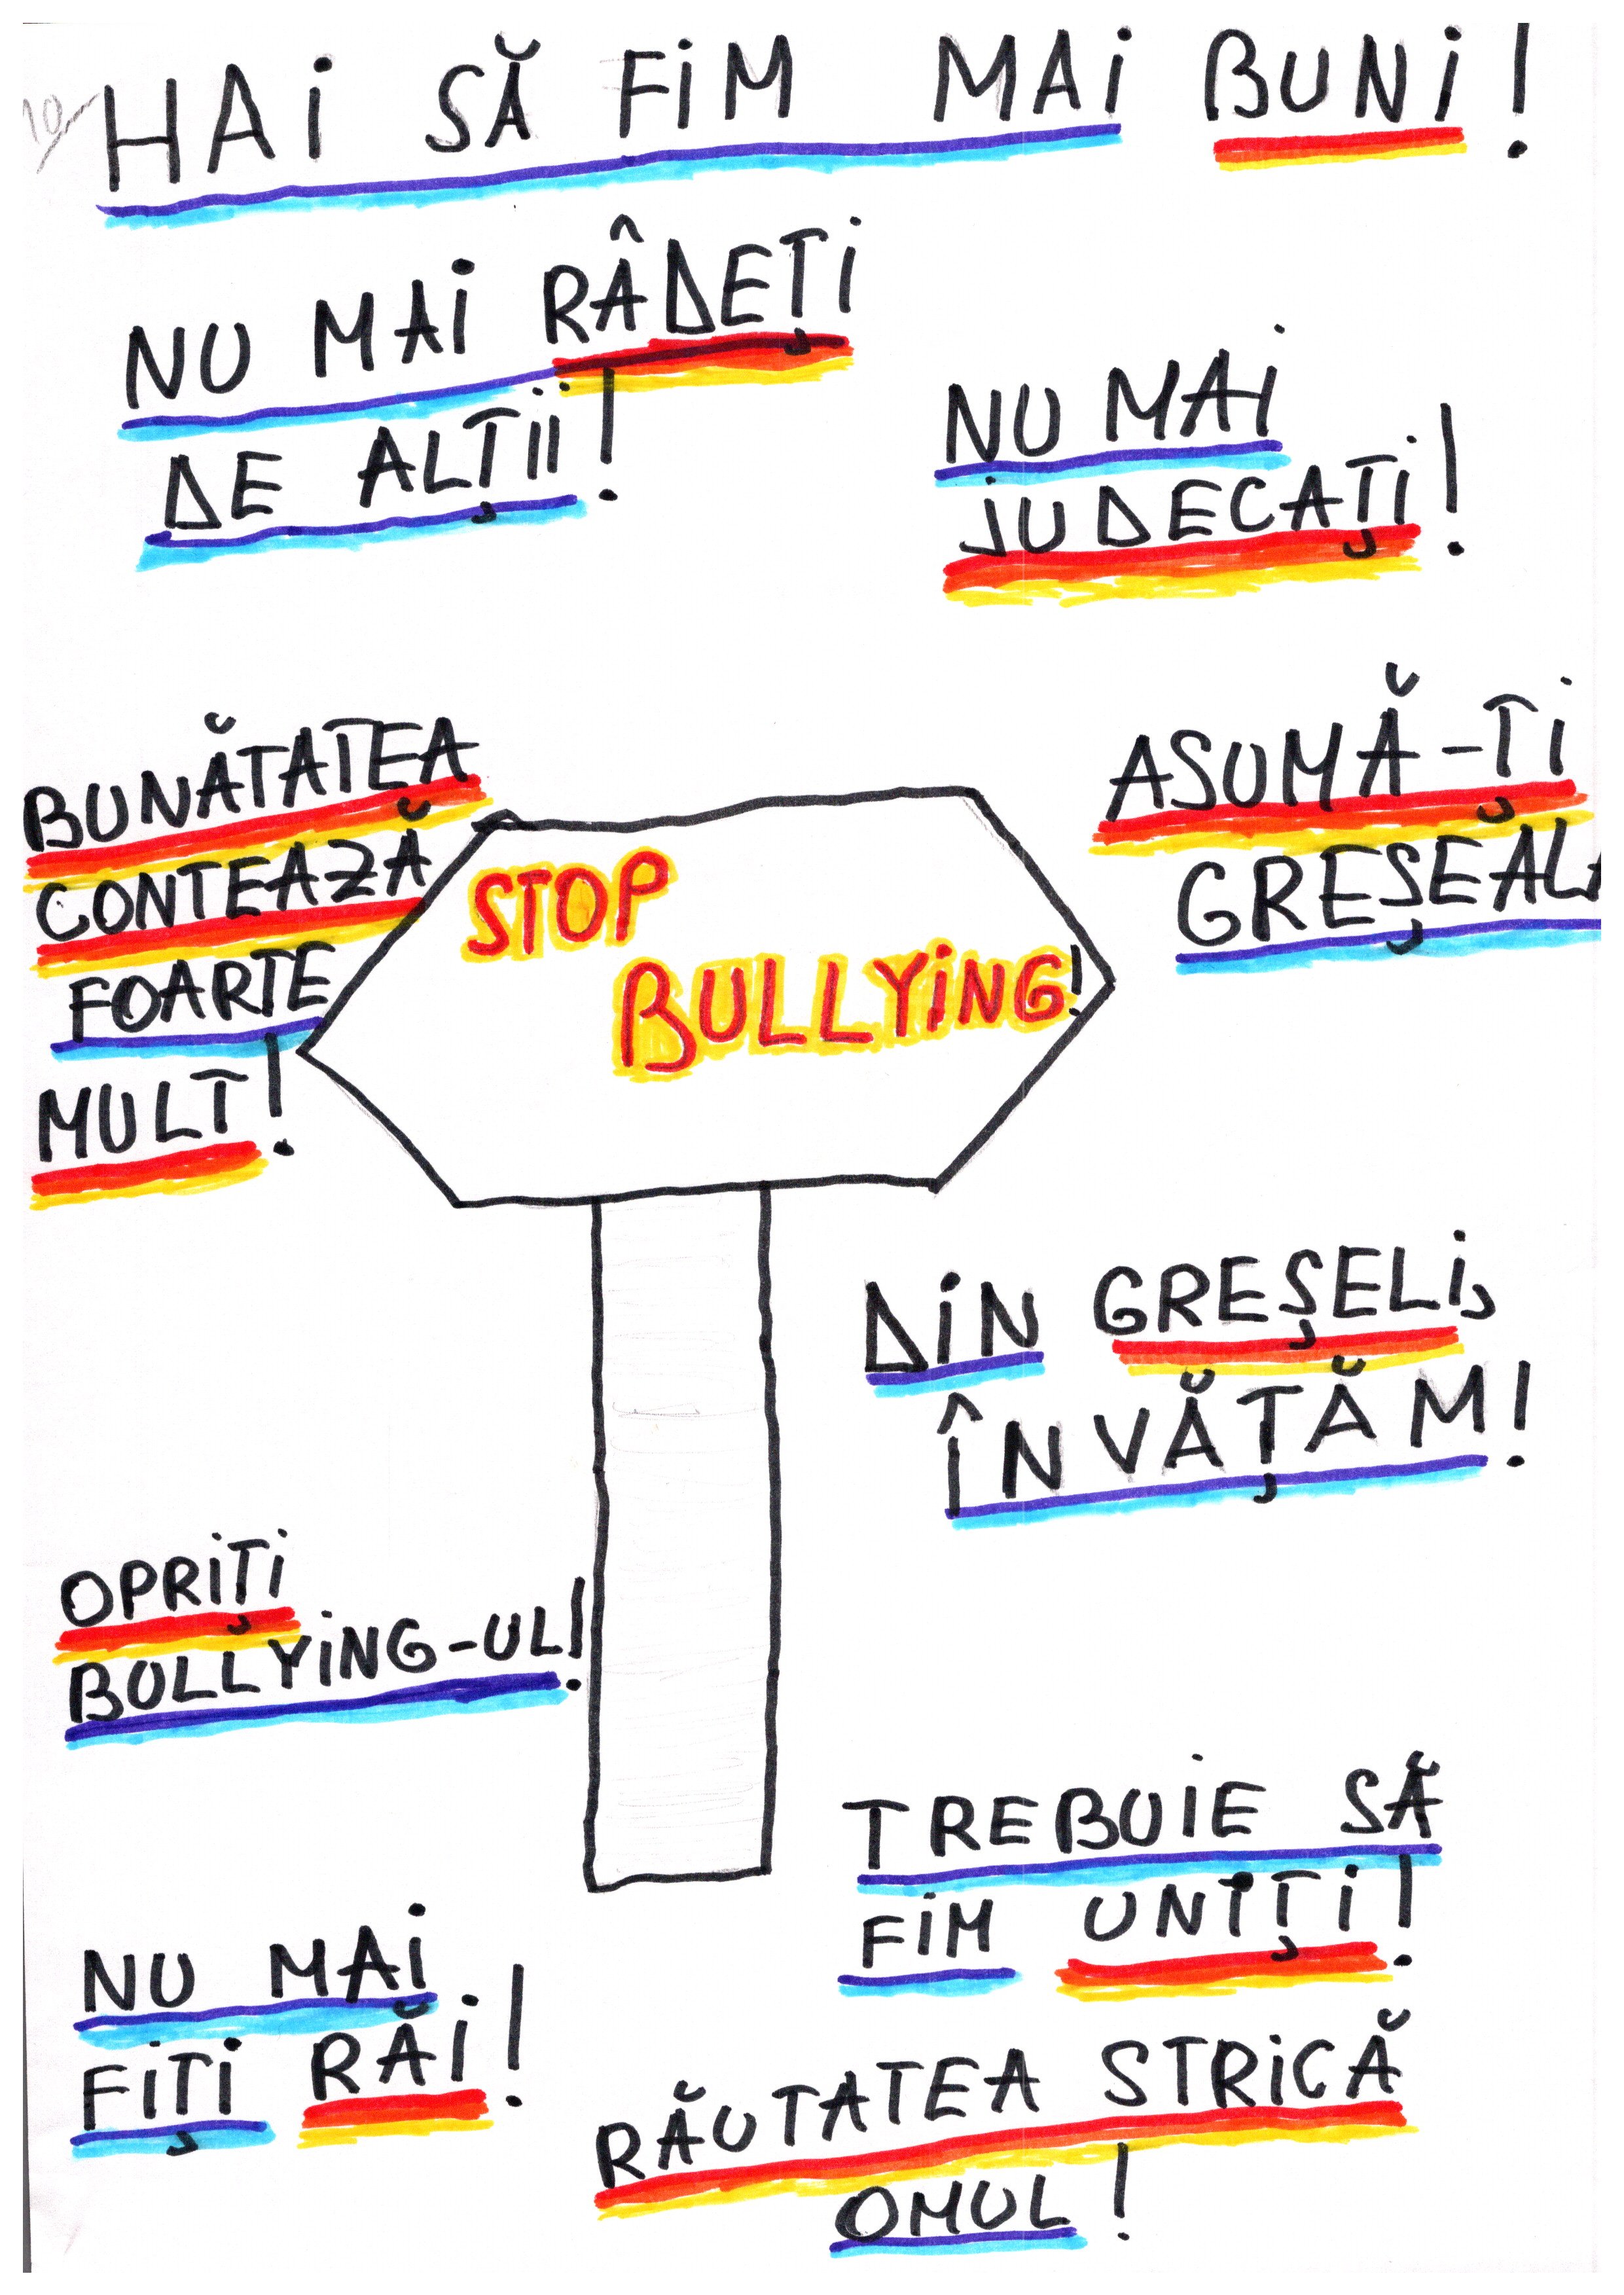 10
HAI SĂ FIM MAI BUNI!
NU MAI RÂDEȚI
DE ALȚII!
NU MAI
JUDECAȚI!
BUNĂTATEA
CONTEAZĂ
FOARTE
MULT!
STOP
BULLYING!
ASUMĂ-ȚI
GREȘEALA
DIN GREȘELI,
ÎNVĂȚĂM!
OPRIȚI
BULLYING-UL!
TREBUIE SĂ
FIM UNIȚI!
NU MAI
FIȚI RĂI!
RĂUTATEA STRICĂ
OMUL!